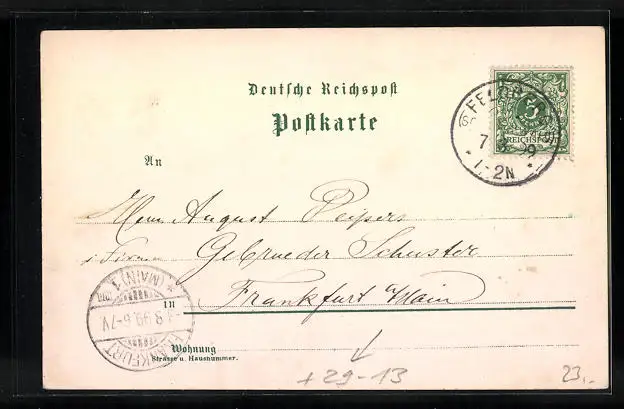 Deutsche Reichspost
Postkarte
An
Herrn August Peipers
i/Firma Gebrueder Schuster
Frankfurt a/Main
in
Wohnung
Strasse u. Hausnummer.
5
REICHSPOST
1-2N
(MAIN) 1
FRANKFURT
+29-13
23.-